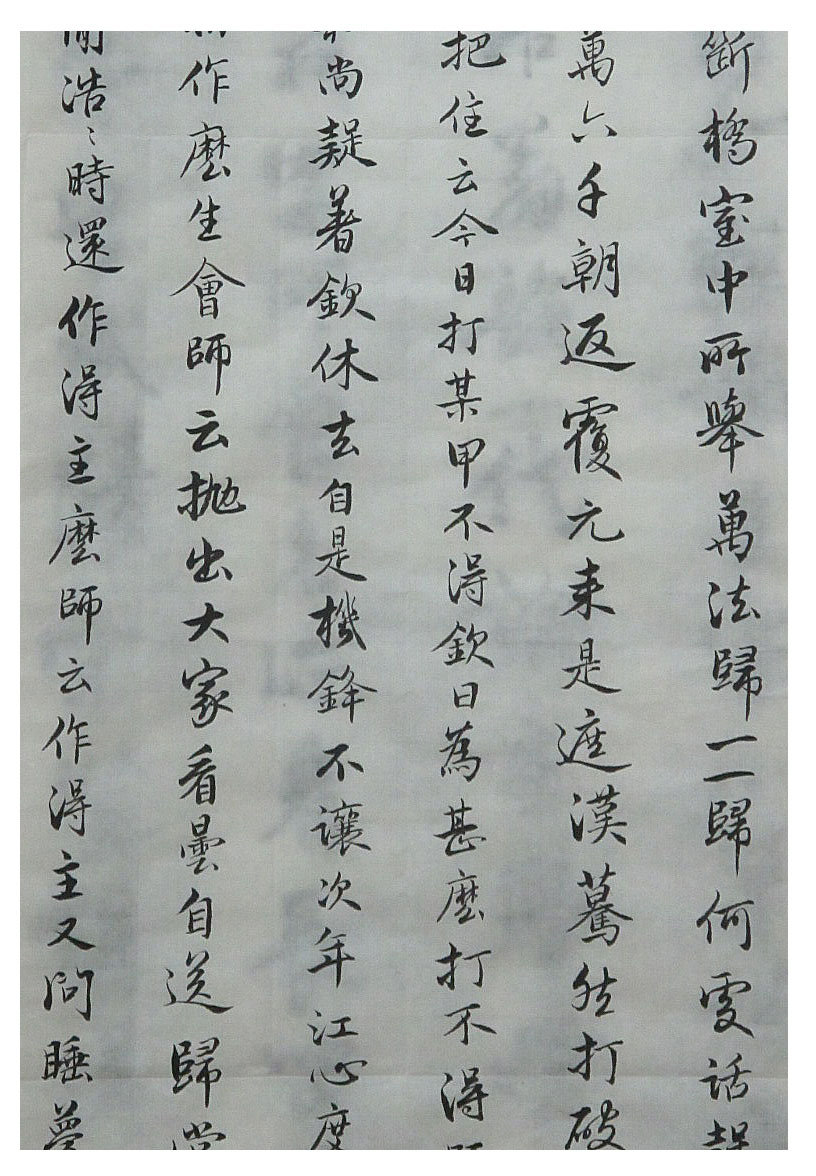 斷橋室中所舉萬法歸一一歸何處話
萬六千朝返覆元來是遮漢驀然打破
把住云今日打某甲不得欽曰為甚麼打不得
尚疑著欽休去自是機鋒不讓次年江心度
作麼生會師云拋出大家看曇自送歸堂
浩〻時還作得主麼師云作得主又問睡夢